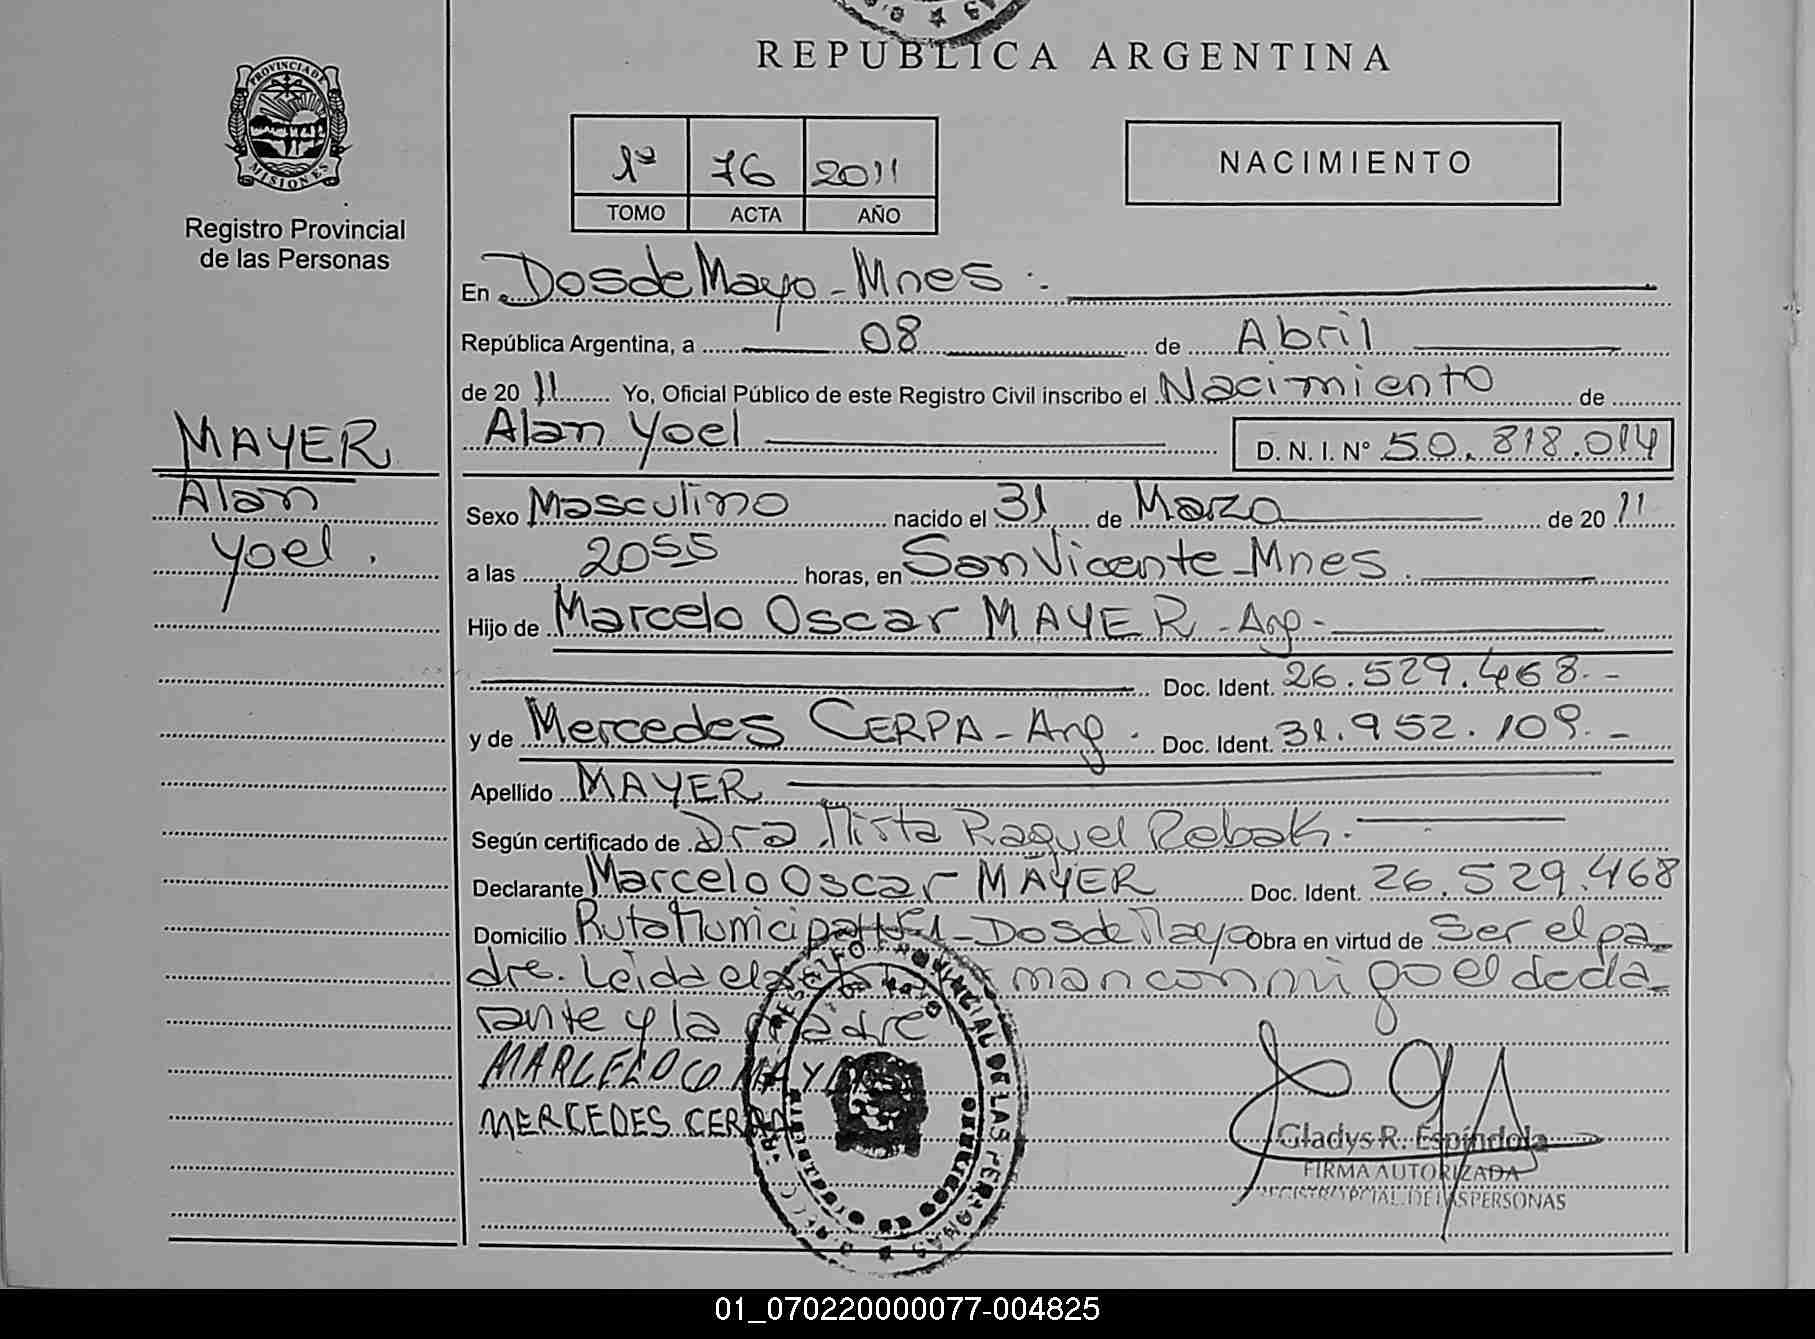 REPUBLICA ARGENTINA
PROVINCIA DE
MISIONES
Registro Provincial
de las Personas
1º 76 2011
TOMO ACTA AÑO
NACIMIENTO
En Dos de Mayo - Mnes.
República Argentina, a 08 de Abril
de 20 11 Yo, Oficial Público de este Registro Civil inscribo el Nacimiento de
Alan Yoel D. N. I. Nº 50.818.014
MAYER
Alan
Yoel.
Sexo Masculino nacido el 31 de Marzo de 20 11
a las 20 55 horas, en San Vicente - Mnes.
Hijo de Marcelo Oscar MAYER - Arg -
Doc. Ident. 26.529.468.-
y de Mercedes CERPA - Arg. Doc. Ident. 31.952.109.-
Apellido MAYER
Según certificado de Dra Mirta Raquel Robak.
Declarante Marcelo Oscar MAYER Doc. Ident. 26.529.468
Domicilio Ruta Municipal Nº 1 - Dos de Mayo Obra en virtud de Ser el pa
dre. Leida el man conmigo el decla
rante y la madre
MARCELO O MAYER
MERCEDES CERPA
REGISTRO PROVINCIAL DE LAS PERSONAS
Gladys R. Espíndola
FIRMA AUTORIZADA
REGISTRO PCIAL. DE LAS PERSONAS
01_070220000077-004825